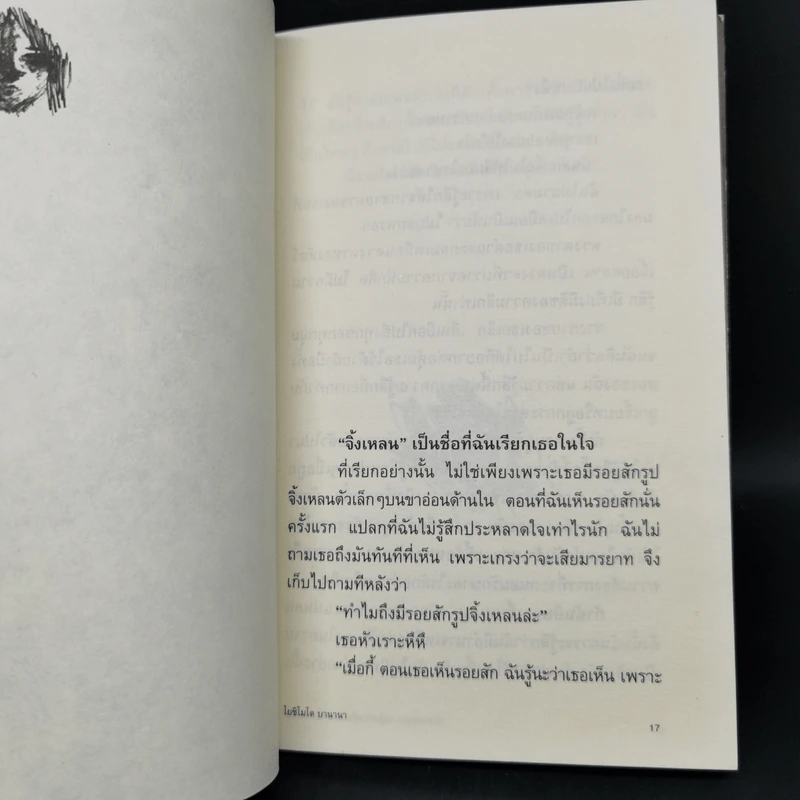 “จิ้งเหลน” เป็นชื่อที่ฉันเรียกเธอในใจ
ที่เรียกอย่างนั้น ไม่ใช่เพียงเพราะเธอมีรอยสักรูป
จิ้งเหลนตัวเล็กๆบนขาอ่อนด้านใน ตอนที่ฉันเห็นรอยสักนั่น
ครั้งแรก แปลกที่ฉันไม่รู้สึกประหลาดใจเท่าไรนัก ฉันไม่
ถามเธอถึงมันทันทีที่เห็น เพราะเกรงว่าจะเสียมารยาท จึง
เก็บไปถามทีหลังว่า
“ทำไมถึงมีรอยสักรูปจิ้งเหลนล่ะ”
เธอหัวเราะหึหึ
“เมื่อกี้ ตอนเธอเห็นรอยสัก ฉันรู้นะว่าเธอเห็น เพราะ
โยชิโมโต บานานา
17